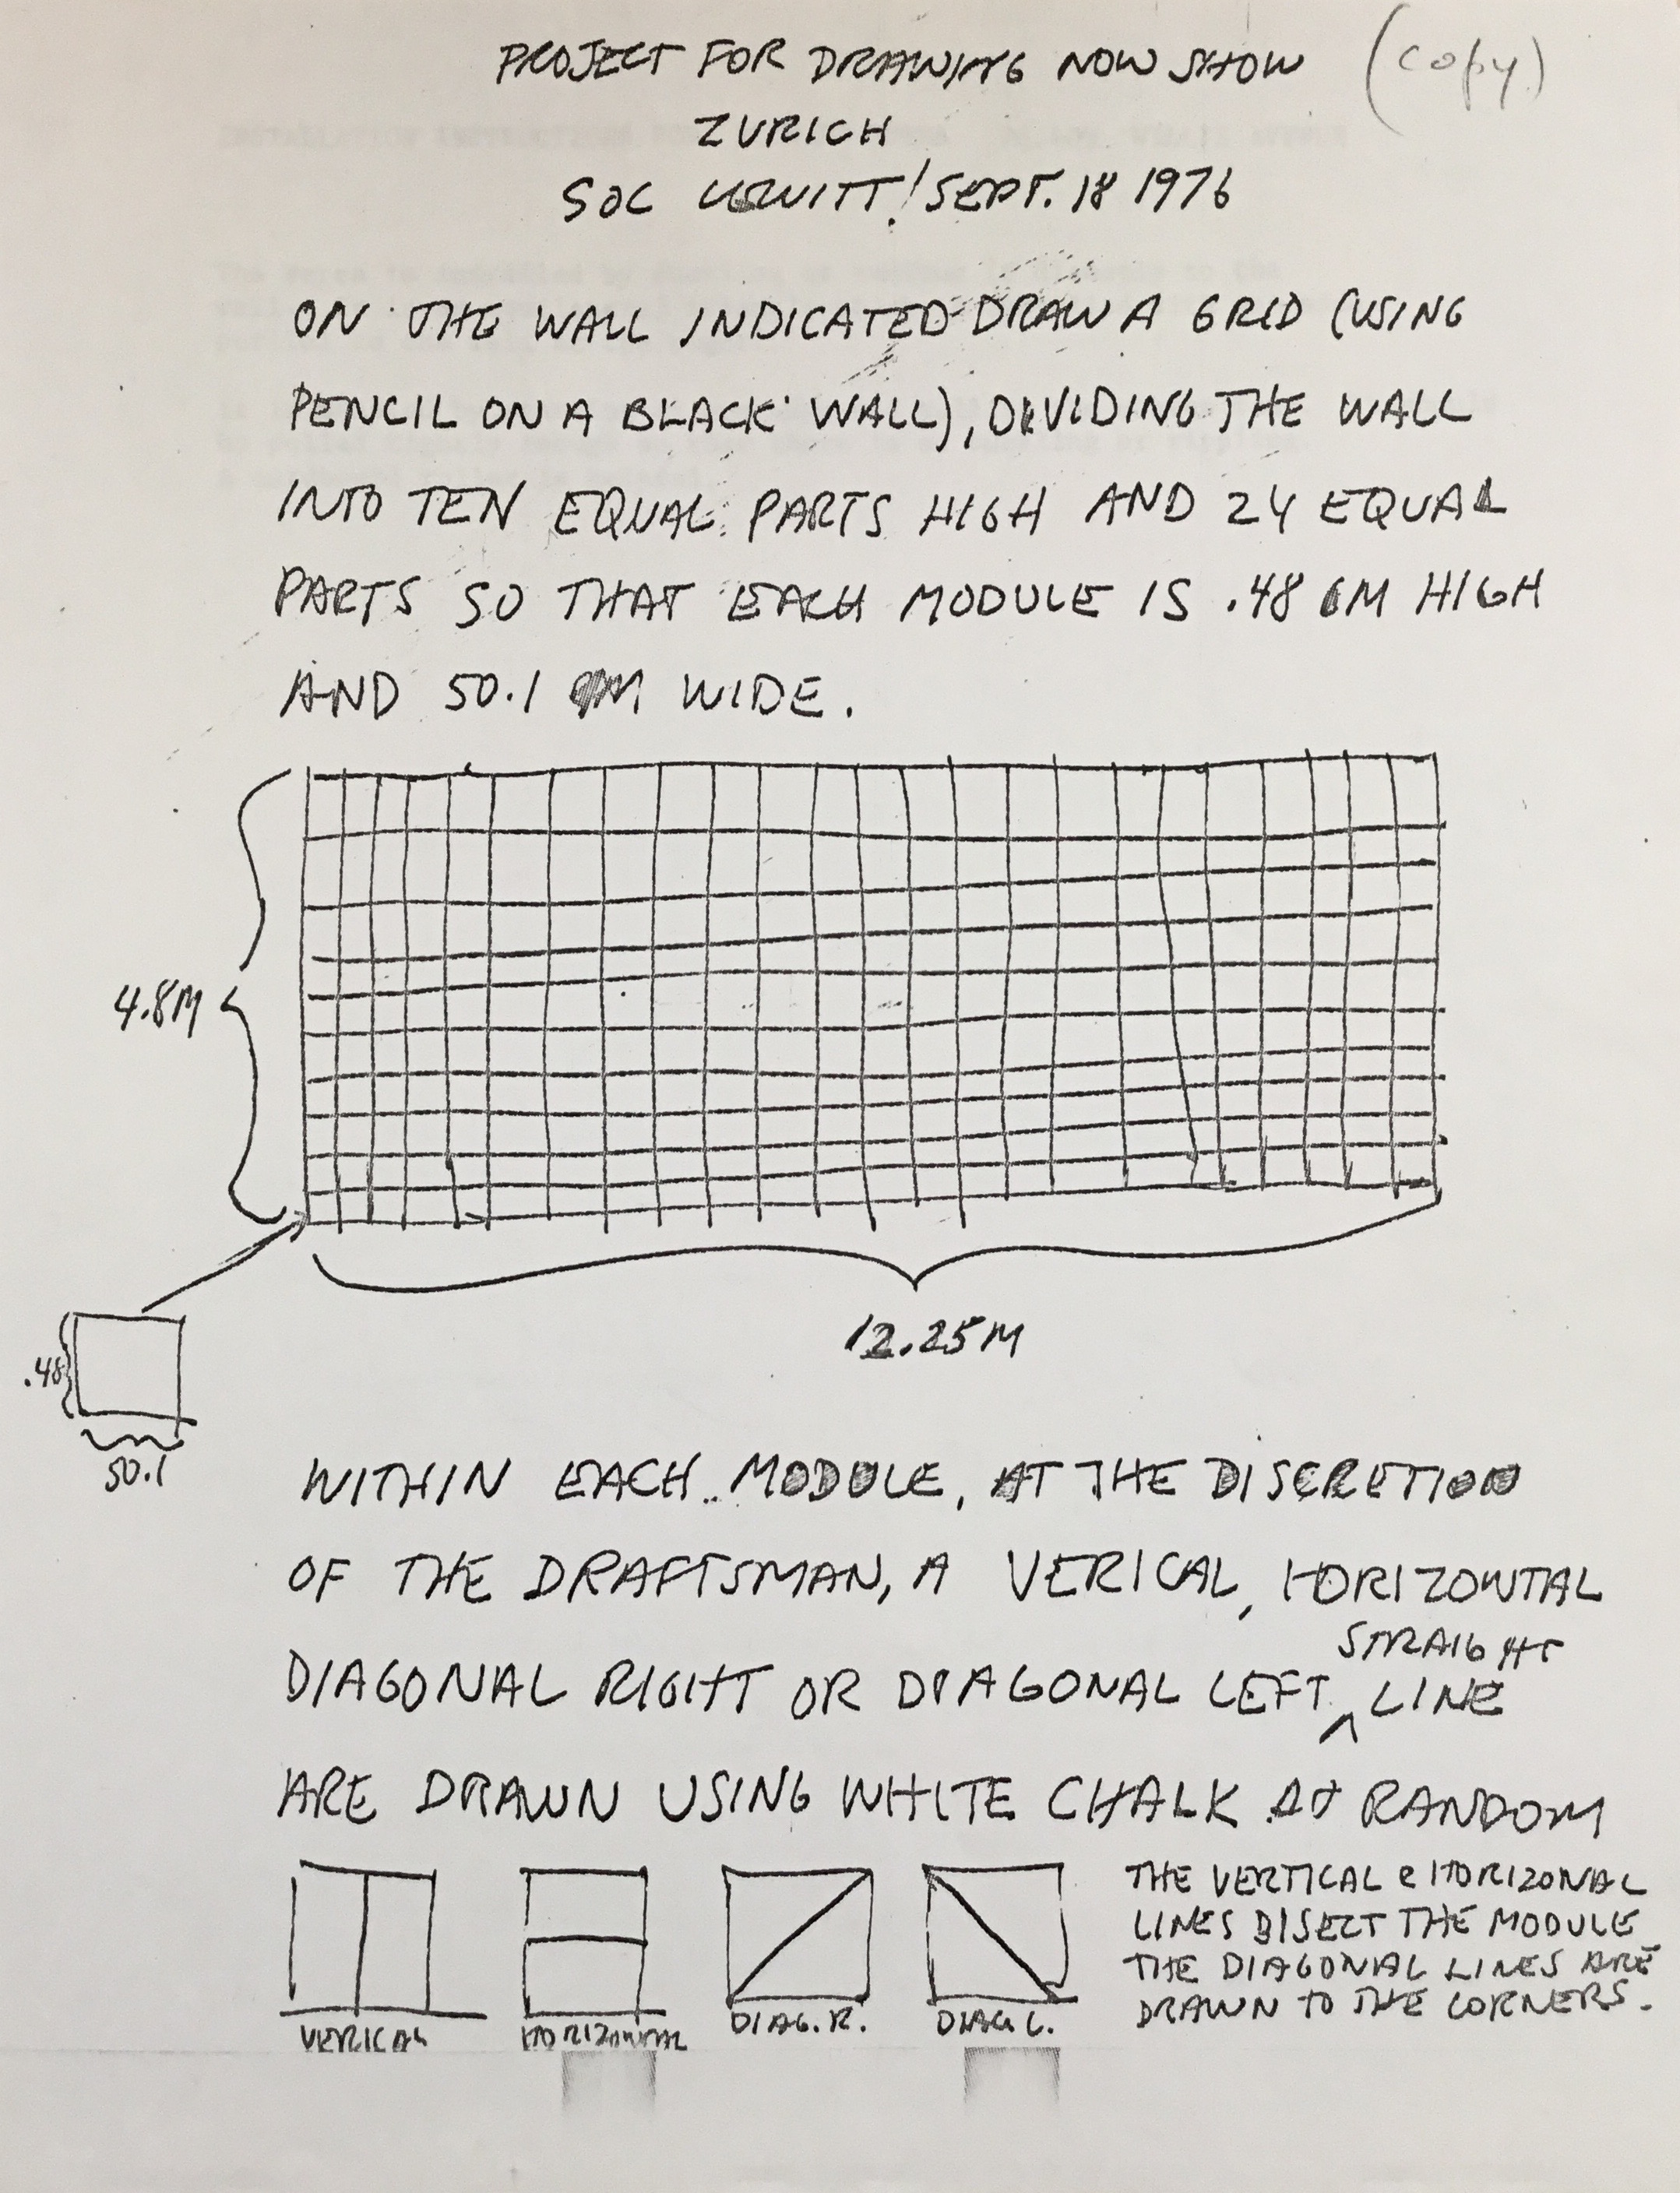 PROJECT FOR DRAWING NOW SHOW (copy)
ZURICH
SOL LEWITT / SEPT. 18 1976
ON THE WALL INDICATED DRAW A GRID (USING
PENCIL ON A BLACK WALL), DIVIDING THE WALL
INTO TEN EQUAL PARTS HIGH AND 24 EQUAL
PARTS SO THAT EACH MODULE IS .48 CM HIGH
AND 50.1 CM WIDE.
4.8M
12.25M
.48
50.1
WITHIN EACH MODULE, AT THE DISCRETION
OF THE DRAFTSMAN, A VERICAL, HORIZONTAL
STRAIGHT
DIAGONAL RIGHT OR DIAGONAL LEFT ^ LINE
ARE DRAWN USING WHITE CHALK AT RANDOM
VERICAL
HORIZONTAL
DIAG. R.
DIAG L.
THE VERTICAL & HORIZONAL
LINES BISECT THE MODULE
THE DIAGONAL LINES ARE
DRAWN TO THE CORNERS.